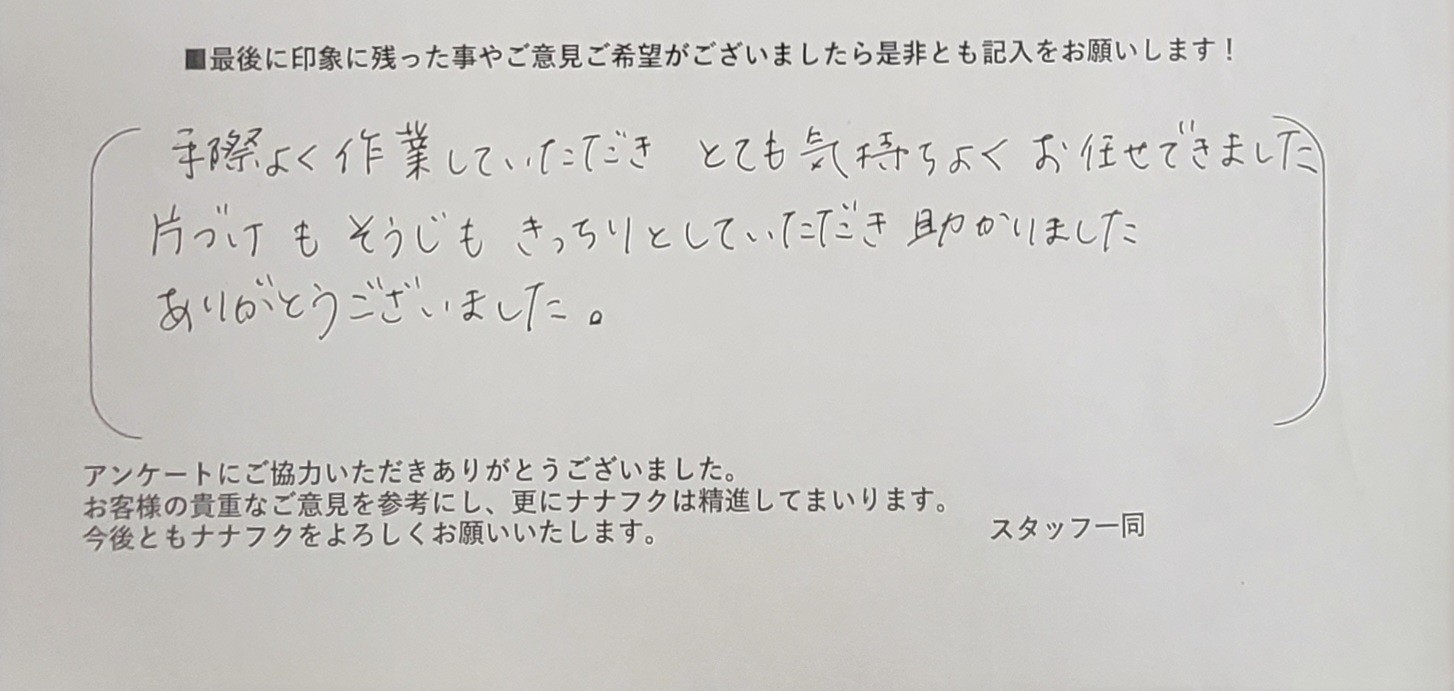 ■最後に印象に残った事やご意見ご希望がございましたら是非とも記入をお願いします！
手際よく作業していただき とても気持ちよく お任せできました
片づけ も そうじも きっちりとしていただき 助かりました
ありがとうございました。
アンケートにご協力いただきありがとうございました。
お客様の貴重なご意見を参考にし、更にナナフクは精進してまいります。
今後ともナナフクをよろしくお願いいたします。
スタッフ一同